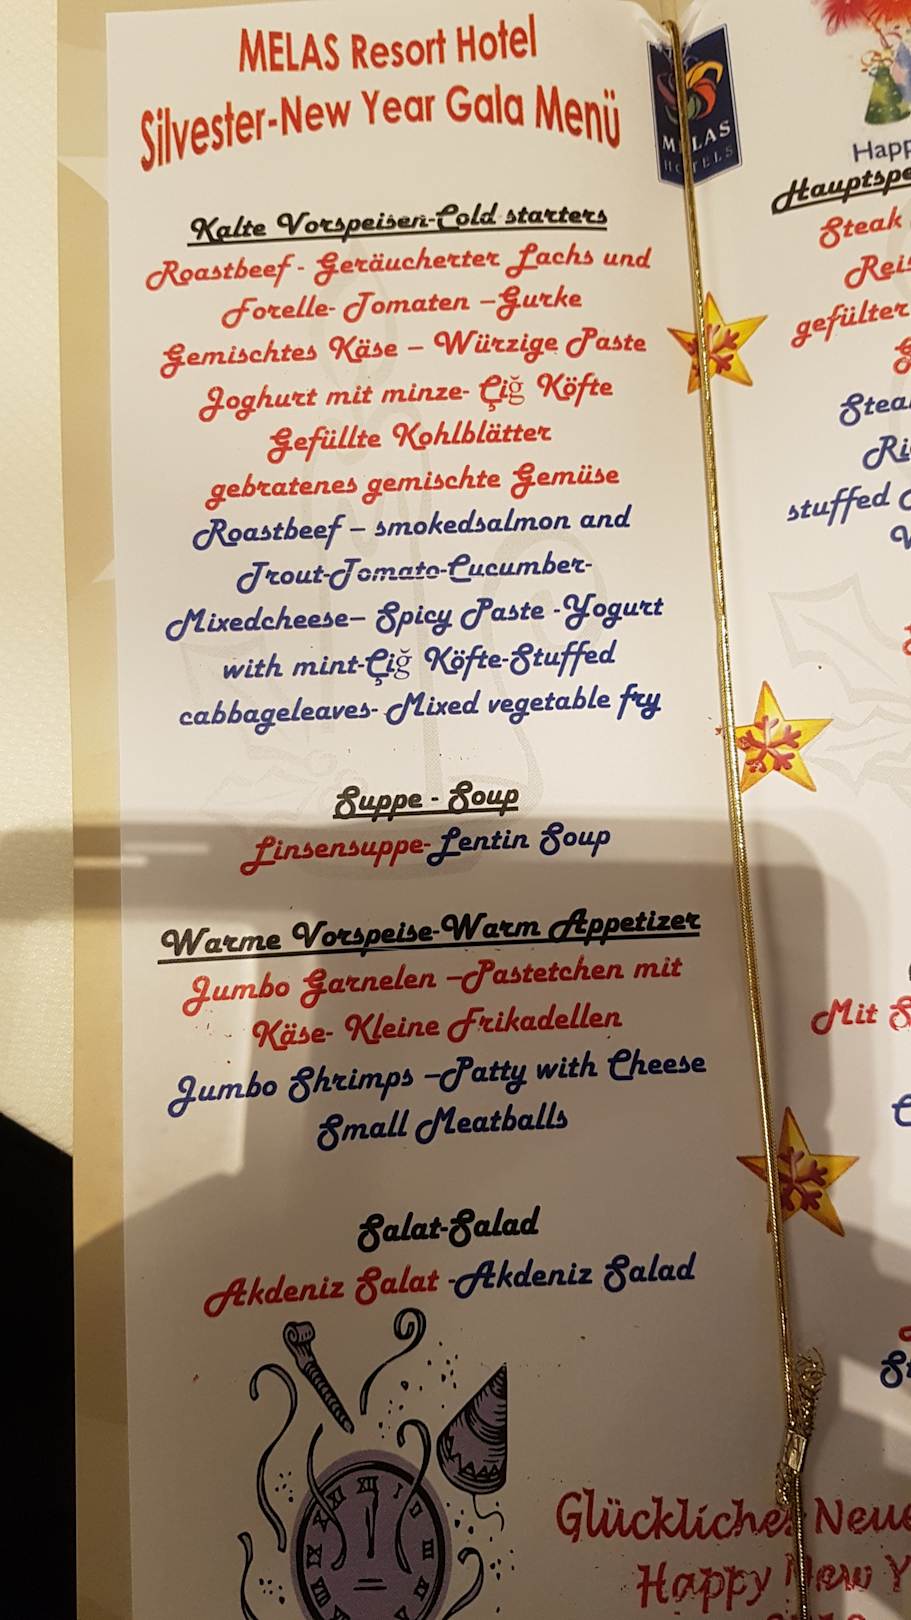 MELAS Resort Hotel
Silvester-New Year Gala Menü
MELAS
HOTELS
Kalte Vorspeisen-Cold starters
Roastbeef - Geräucherter Lachs und
Forelle- Tomaten –Gurke
Gemischtes Käse – Würzige Paste
Joghurt mit minze- Çiğ Köfte
Gefüllte Kohlblätter
gebratenes gemischte Gemüse
Roastbeef – smokedsalmon and
Trout-Tomato-Cucumber-
Mixedcheese– Spicy Paste -Yogurt
with mint-Çiğ Köfte-Stuffed
cabbageleaves- Mixed vegetable fry
Suppe - Soup
Linsensuppe-Lentin Soup
Warme Vorspeise-Warm Appetizer
Jumbo Garnelen –Pastetchen mit
Käse- Kleine Frikadellen
Jumbo Shrimps –Patty with Cheese
Small Meatballs
Salat-Salad
Akdeniz Salat -Akdeniz Salad
XII
Happ
Hauptspe
Steak
Reis
gefülter
G
Stea
Ri
stuffed
Mit S
St
Glückliches Neue
Happy New Y